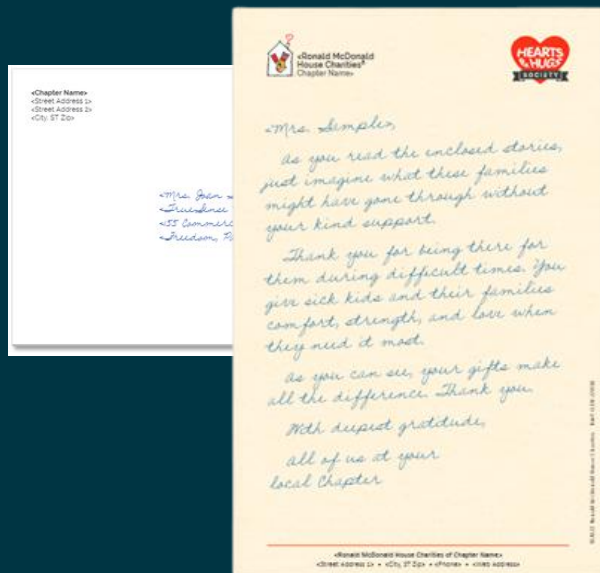 <Chapter Name>
<Street Address 1>
<Street Address 2>
<City, ST Zip>
<Mrs. Joan
<TrueSense
<155 Commerc
<Freedom, P
<Ronald McDonald
House Charities®
Chapter Name>
HEARTS
& HUGS
SOCIETY
<Mrs. Sample>,
As you read the enclosed stories,
just imagine what these families
might have gone through without
your kind support.
Thank you for being there for
them during difficult times. You
give sick kids and their families
comfort, strength, and love when
they need it most.
As you can see, your gifts make
all the difference. Thank you.
With deepest gratitude,
All of us at your
local Chapter
<Ronald McDonald House Charities of Chapter Name>
<Street Address 1> • <City, ST Zip> • <Phone> • <Web Address>